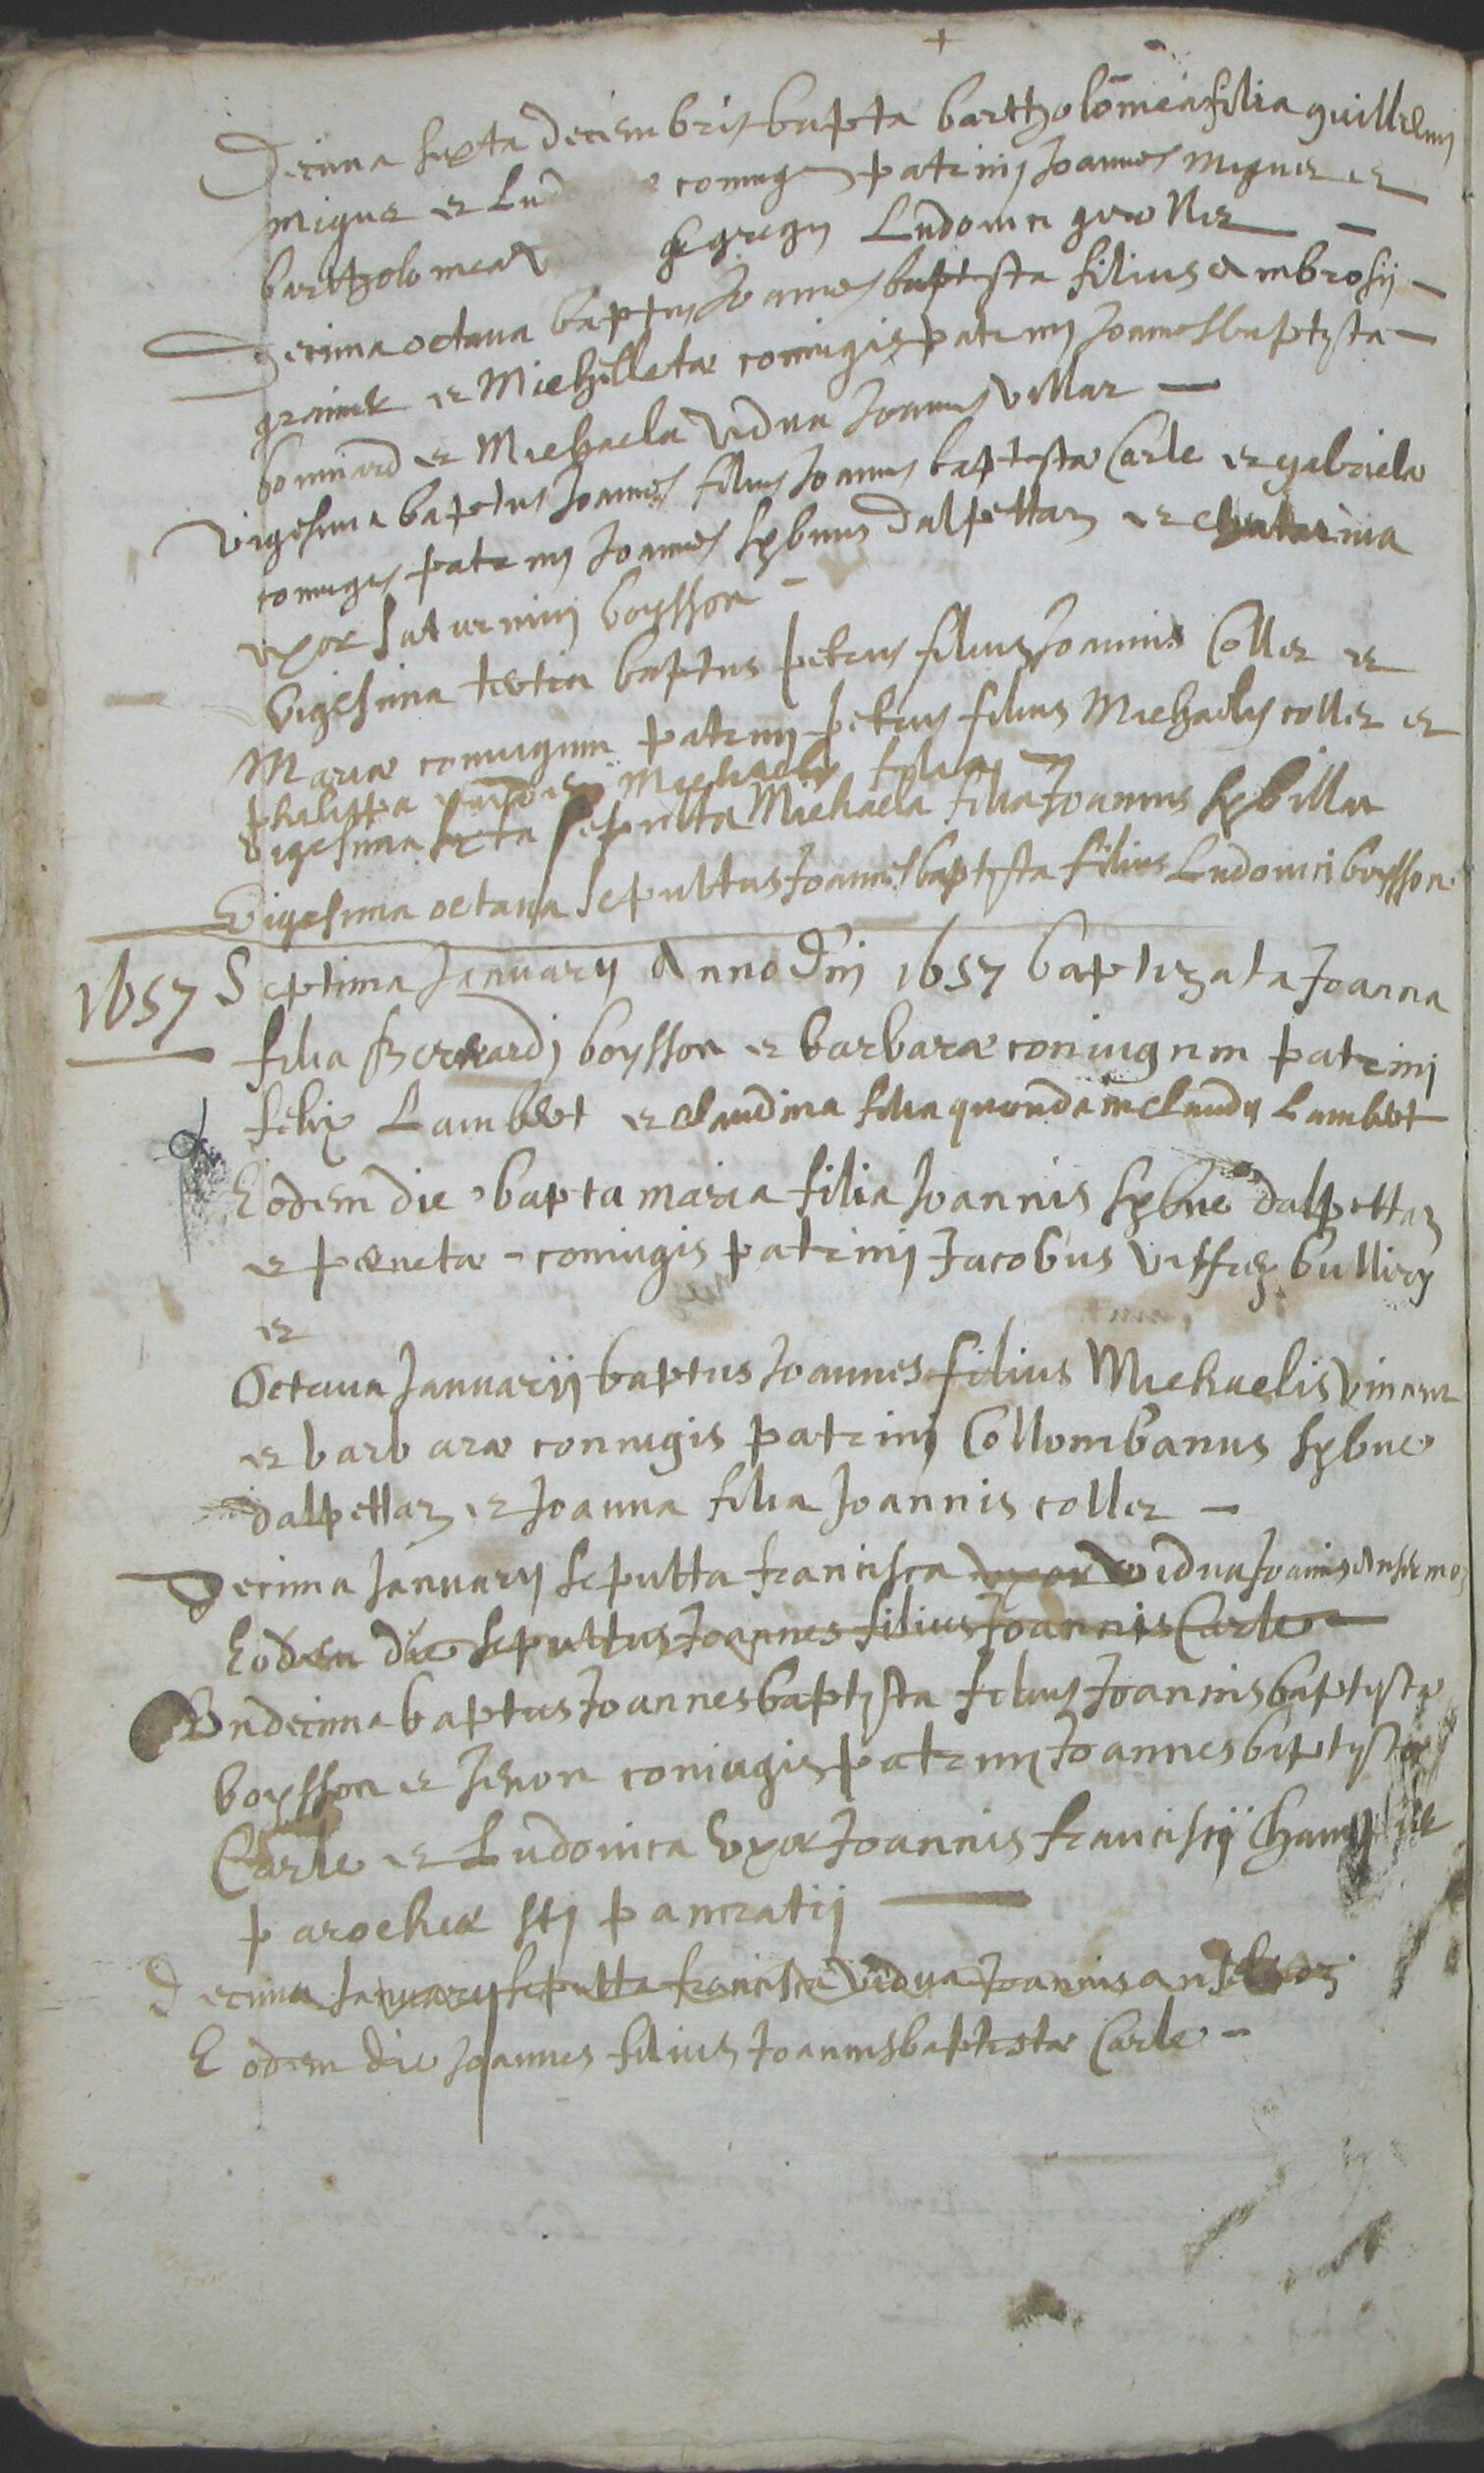 Decima sexta decembris bapta barthholomea filia guillelmi
migue et Lud coniugum patrinij Joannes migner et
barthholomea egregij Ludovici
Decima octava baptus Joannes baptista filius Ambrosij
et Michelletæ coniugis patrinij Joannes baptysta
bonniard et Michaela vidua Joannis villar
vigesima baptus Joannes filius Joannis baptistæ Carle et gabriela
coniugis patrinij Joannes sybuus dalpettaz et chatarina
uxor saturninij boysson
vigesima tertia baptus petrus filius Joannis Collet et
Mariæ coniugum patrinij petrus filius Michaelis collet et
Michaelis filia
vigesima sexta sepulta Michaela filia Joannis sybillu
Vigesima octava sepultus Joannes baptysta filius Ludovici boysson
1657 Septima Januarij Anno Dnj 1657 baptizata Joanna
filia Bernardj boysson et barbaræ coniugum patrinij
felix Lambert et claudina filia quondam claudij Lambert
Eodem die bapta maria filia Joannis sybue dalpettaz
et pernetæ coniugis patrinij Jacobus viffrez bullier
et
Octava Januarij baptus Joannes filius Michaelis vincent
et barbaræ coniugis patrinij Collombanus sybue
dalpettaz et Joanna filia Joannis collet
Decima Januarij sepulta francisca uxor vidua Joannis Anselmoz
Eodem die sepultus Joannes filius Joannis Carle
Undecima baptus Joannes baptysta filius Joannis baptystæ
boysson et coniugis patrinij Joannes baptysta
Carle et Ludovica uxor Joannis franciscij
parochiæ stj pancratij
decima Januarij sepulta francisca vidua Joannis
Eodem die Joannes filius Joannis baptistæ Carle